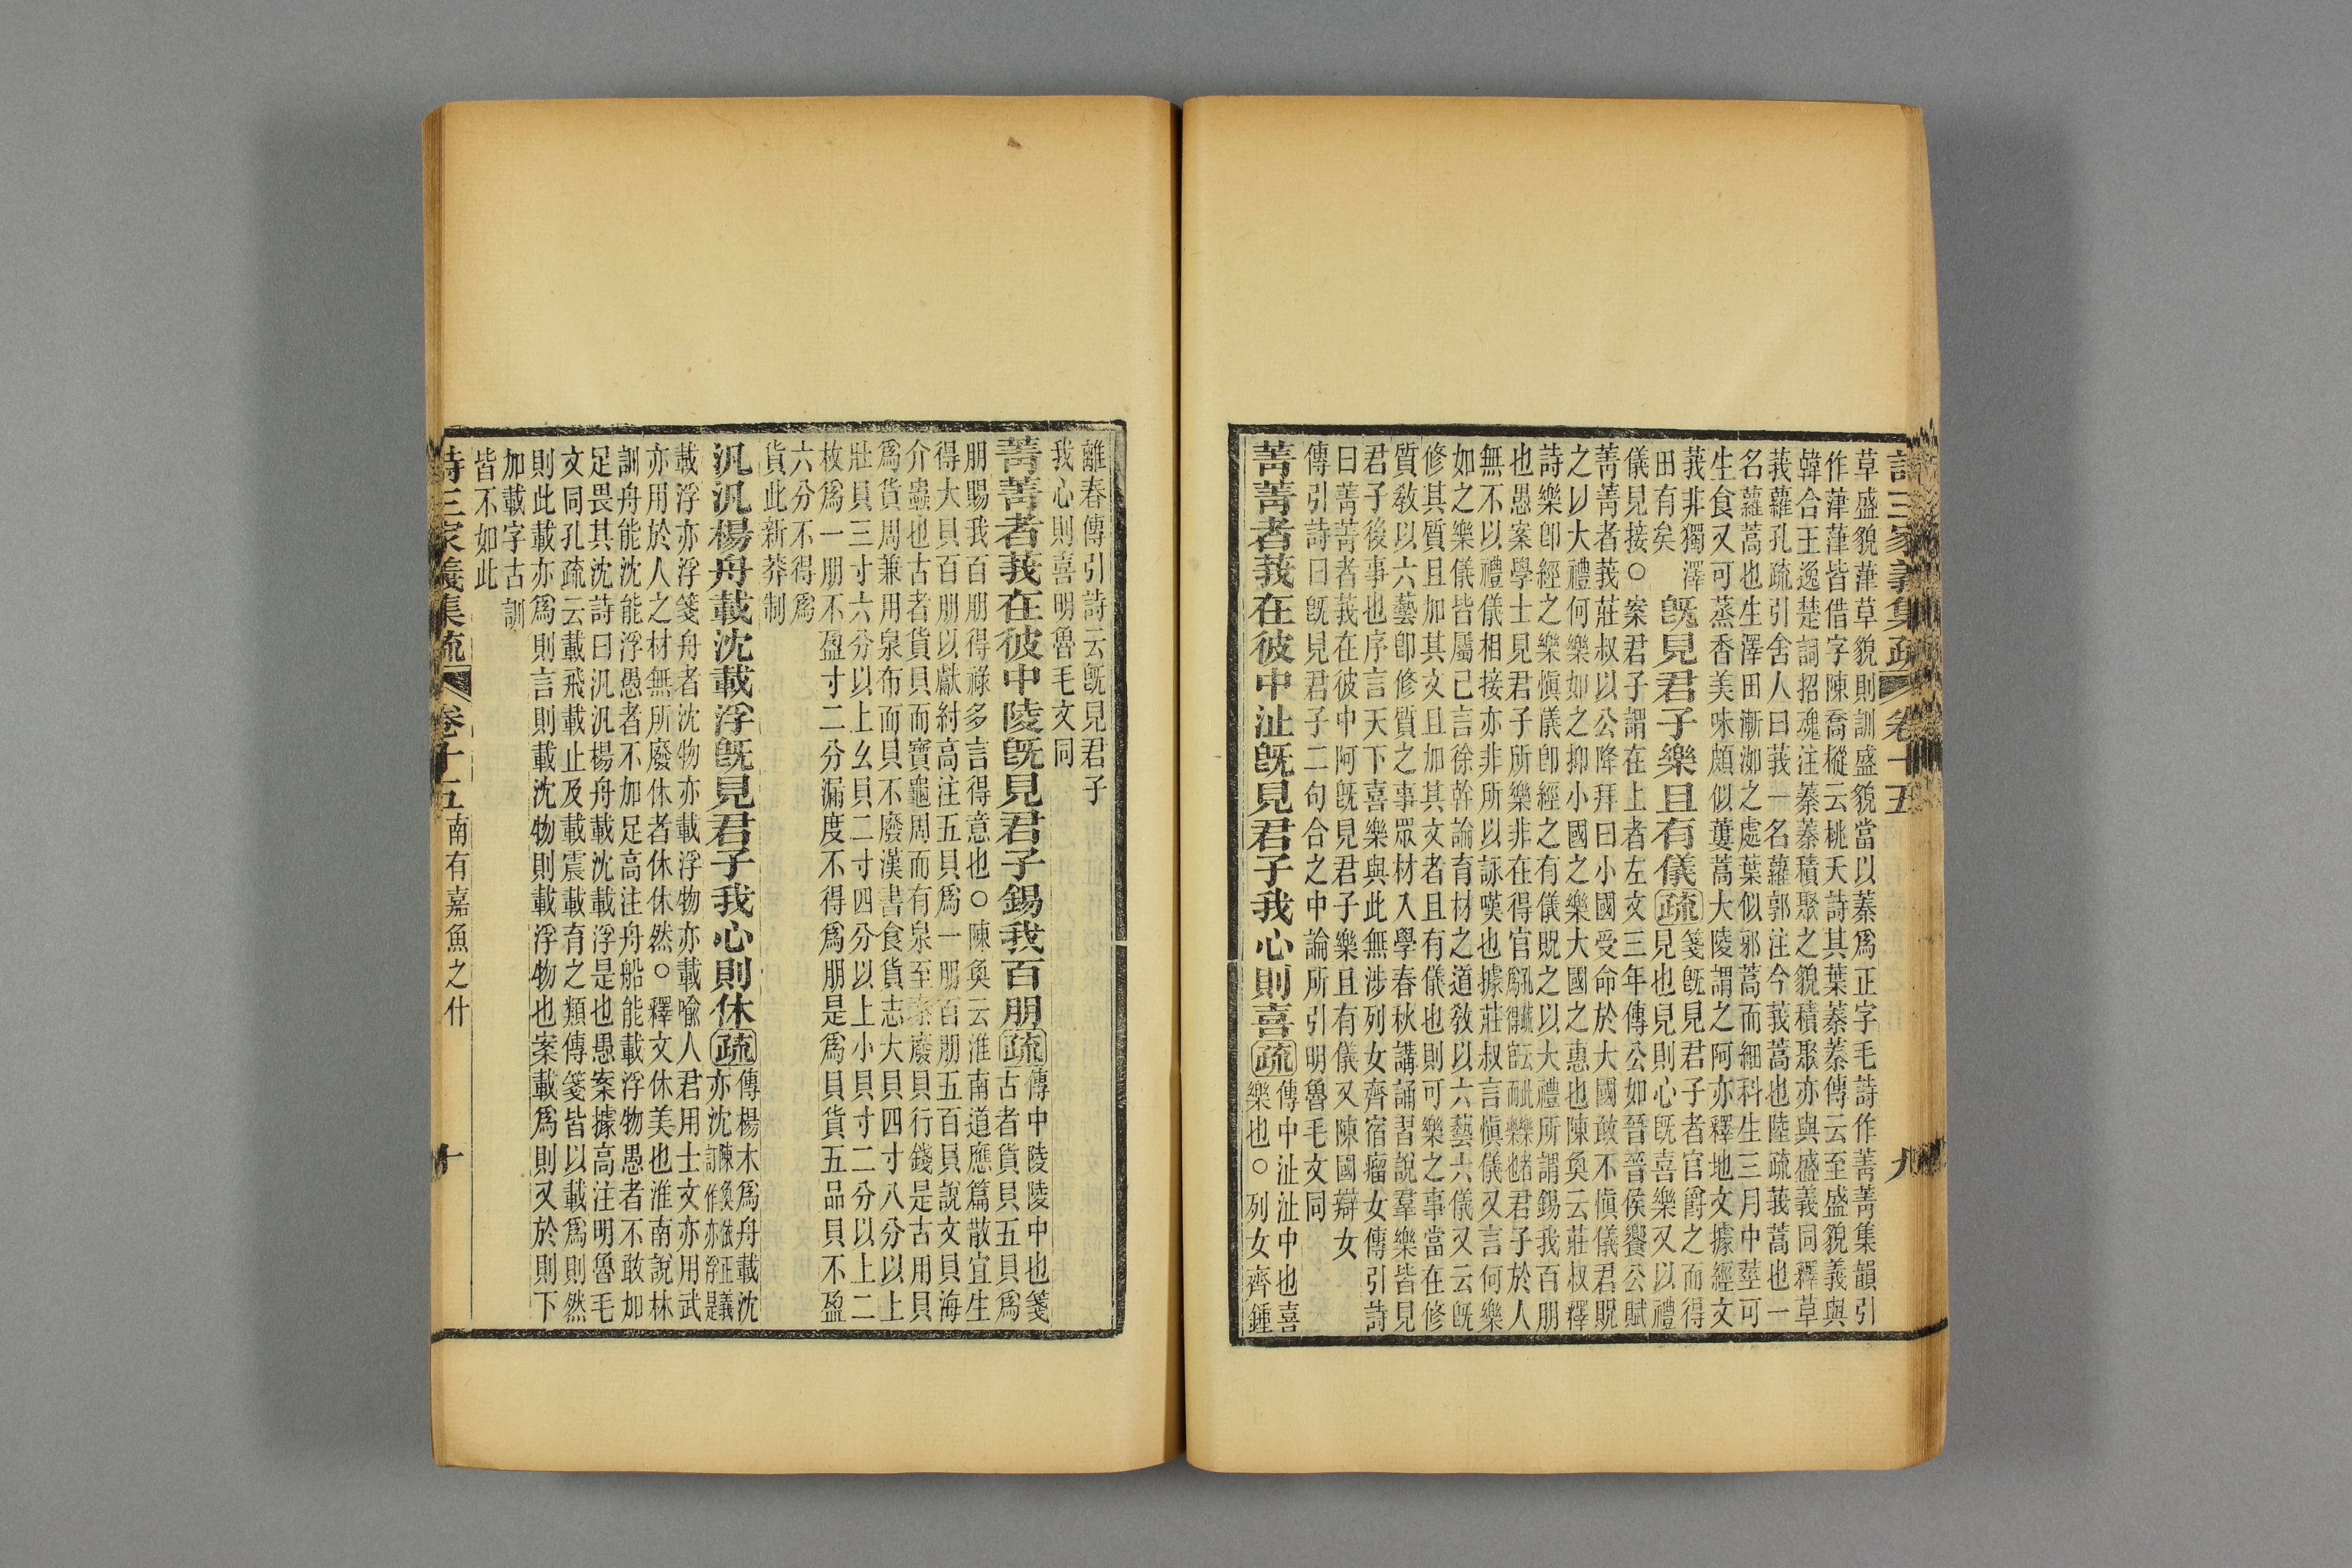 詩三家義集疏 卷十五 九
草盛貌葏草貌則訓盛貌當以蓁爲正字毛詩作菁菁集韻引
作葏葏皆借字陳喬樅云桃夭詩其葉蓁蓁傳云至盛貌義與
韓合王逸楚詞招魂注蓁蓁積聚之貌積聚亦與盛義同釋草
莪蘿孔疏引舍人曰莪一名蘿郭注今莪蒿也陸疏莪蒿也一
名蘿蒿也生澤田漸洳之處葉似邪蒿而細科生三月中莖可
生食又可蒸香美味頗似蔞蒿大陵謂之阿亦釋地文據經文
莪非獨澤
田有矣
既見君子樂且有儀疏
箋既見君子者官爵之而得
見也見則心既喜樂又以禮
儀見接○案君子謂在上者左文三年傳公如晉晉侯饗公賦
菁菁者莪莊叔以公降拜曰小國受命於大國敢不愼儀君貺
之以大禮何樂如之抑小國之樂大國之惠也陳奐云莊叔釋
詩樂卽經之樂愼儀卽經之有儀貺之以大禮所謂錫我百朋
也愚案學士見君子所樂非在得官君子於人
無不以禮儀相接亦非所以詠嘆也據莊叔言愼儀又言何樂
如之樂儀皆屬己言徐幹論育材之道敎以六藝六儀又云既
修其質且加其文且加其文者且有儀也則可樂之事當在修
質敎以六藝卽修質之事眾材入學春秋講誦習說羣樂皆見
君子後事也序言天下喜樂與此無涉列女齊宿瘤女傳引詩
曰菁菁者莪在彼中阿既見君子樂且有儀又陳國辯女
傳引詩曰既見君子二句合之中論所引明魯毛文同
菁菁者莪在彼中沚既見君子我心則喜疏
傳中沚沚中也喜
樂也○列女齊鍾
離春傳引詩云既見君子
我心則喜明魯毛文同
菁菁者莪在彼中陵既見君子錫我百朋疏
傳中陵陵中也箋
古者貨貝五貝爲
朋賜我百朋得祿多言得意也○陳奐云淮南道應篇散宜生
得大貝百朋以獻紂高注五貝爲一朋百朋五百貝說文貝海
介蟲也古者貨貝而寶龜周而有泉至秦廢貝行錢是古用貝
爲貨周兼用泉布而貝不廢漢書食貨志大貝四寸八分以上
壯貝三寸六分以上幺貝二寸四分以上小貝寸二分以上二
枚爲一朋不盈寸二分漏度不得爲朋是爲貝貨五品貝不盈
六分不得爲
貨此新莽制
汎汎楊舟載沈載浮既見君子我心則休疏
傳楊木爲舟載沈
亦沈
陳奐依正義
訂作亦浮是
載浮亦浮箋舟者沈物亦載浮物亦載喻人君用士文亦用武
亦用於人之材無所廢休者休休然○釋文休美也淮南說林
訓舟能沈能浮愚者不加足高注舟船能載浮物愚者不敢加
足畏其沈詩曰汎汎楊舟載沈載浮是也愚案據高注明魯毛
文同孔疏云載飛載止及載震載育之類傳箋皆以載爲則然
則此載亦爲則言則載沈物則載浮物也案載爲則又於則下
加載字古訓
皆不如此
詩三家義集疏 卷十五 南有嘉魚之什 十